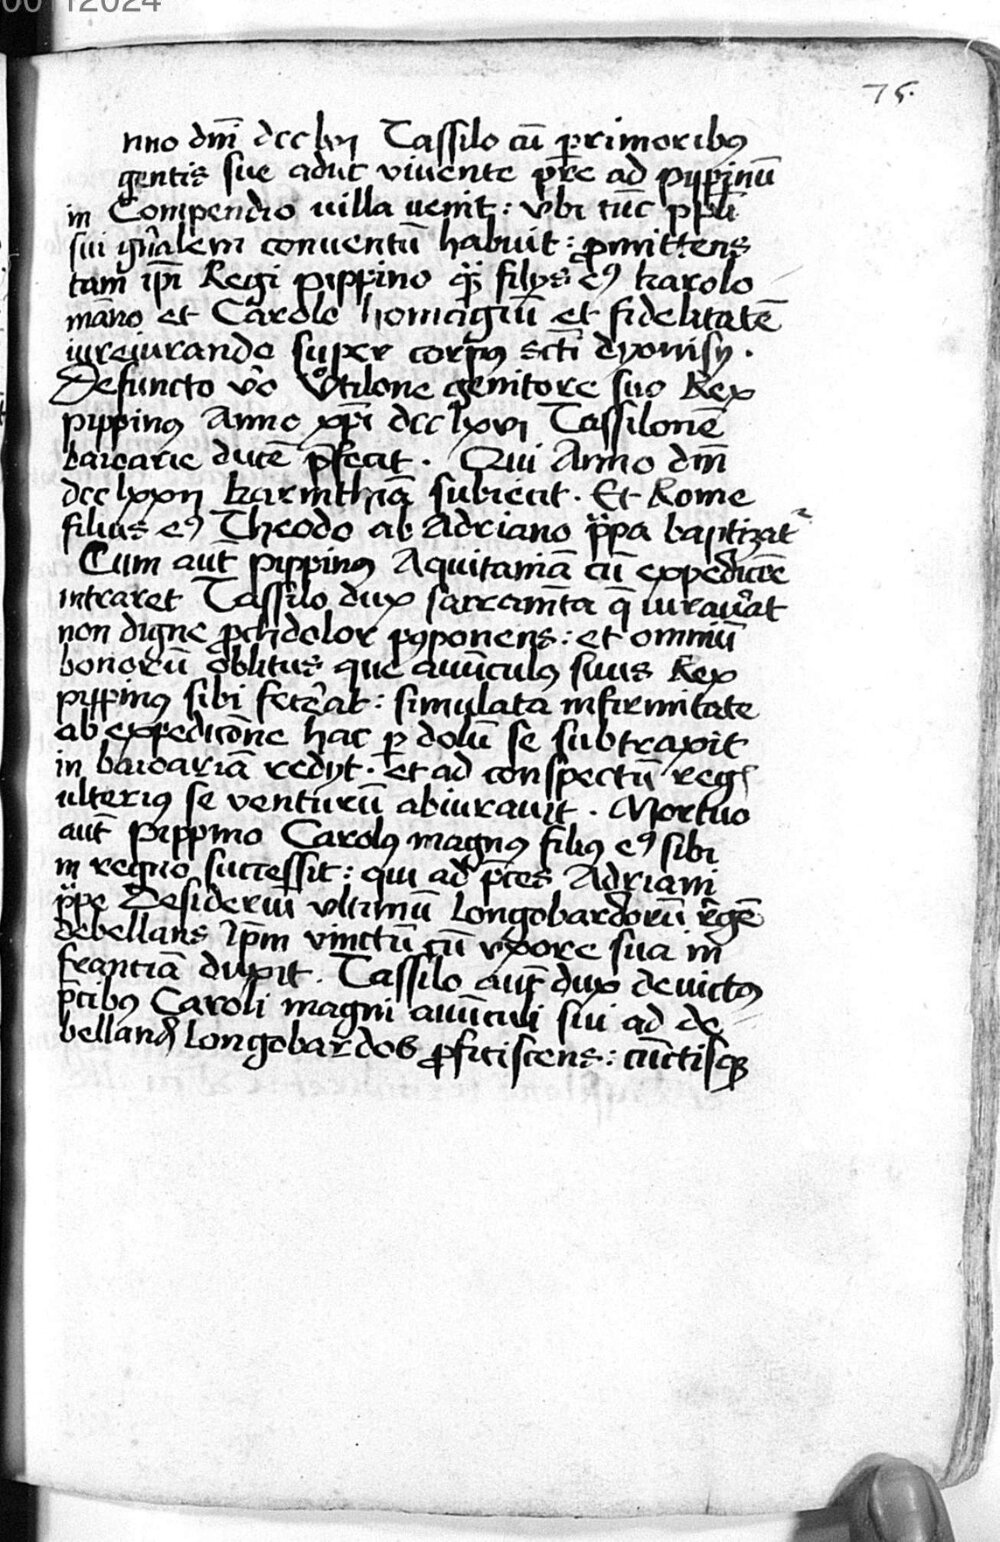 00012024
75.
nno dm̄i dcc lvi Tassilo cū primoribꝰ
gentis sue aduc viuente pr̄e ad pippinū
in Compendio uilla uenit: vbi tūc pp̄li
sui gn̄alem conuentū habuit: ꝓmittens
tam ip̄i Regi pippino qͣꝫ filijs eꝰ karolo
māno et Carolo homagiū et fidelitatē
iureiurando super corpꝰ sc̄ti dyonisij .
Defuncto v̄o Vͦtilone genitore suo Rex
pippinꝰ Anno xp̄i dcc lxvi Tassilonē
baioarie ducē p̄fecit . Qui Anno dm̄i
dcc lxxii karinthiā subiecit . Et Rome
filius eꝰ Theodo ab Adriano papa baptizat᷑
Cum aut̄ pippinꝰ Aquitaniā cū expedicōe
intraret Tassilo dux sacramēta q̄ iurau̾at
non digne ꝓchdolor pꝰponens: et omniū
bonorū oblitus que auūculꝰ suus Rex
pippinus sibi fec̾at: simulata infirmitate
ab expedicōne hac ꝑ dolū se subtraxit
in baioariā redijt . et ad conspectū regꝭ
ulteriꝰ se venturū abiurauit . Mortuo
aut̄ pippino Carolꝰ magnꝰ filiꝰ eꝰ sibi
in regno successit: qui ad p̄ces Adriani
pape Desideriū vltimū Longobardorū regē
debellans Ip̄m vinctū cū vxore sua in
franciā duxit . Tassilo aut̄ dux deuictꝰ
p̄cibꝰ Caroli magni auūculi sui ad de
belland̄ Longobardos ꝓficiscens: cūctisqꝫ